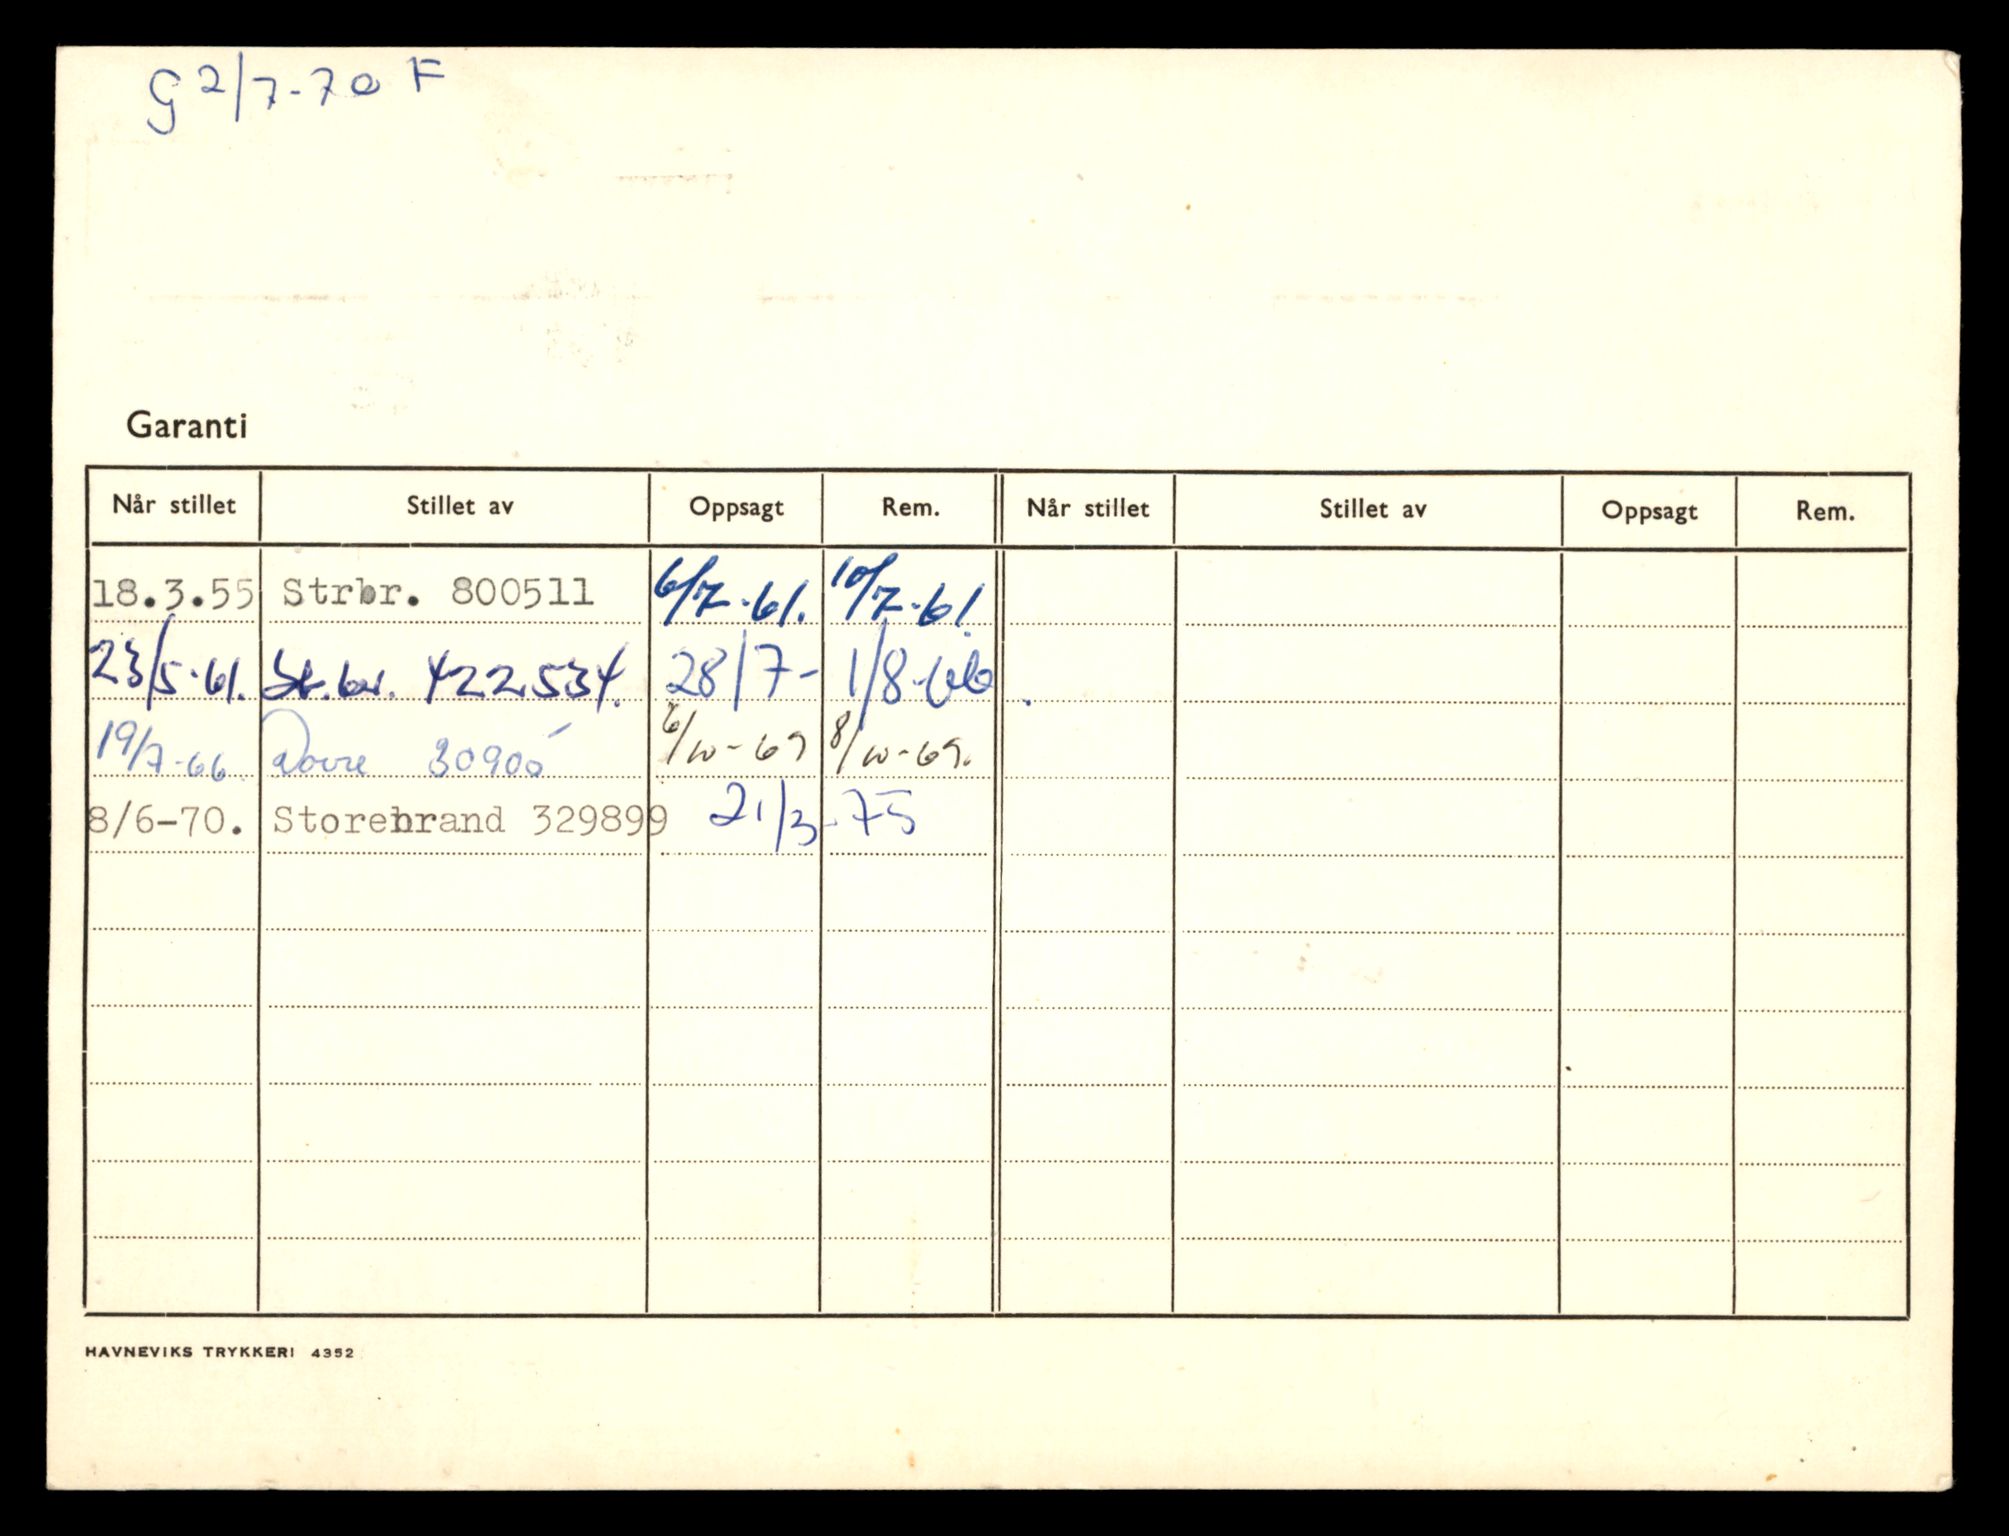 G 2/7-70 F
Garanti
Når stillet Stillet av Oppsagt Rem. Når stillet Stillet av Oppsagt Rem.
18.3.55 Strbr. 800511 6/7-61. 10/7-61.
23/5-61. St.br. 422534. 28/7- 1/8-66
19/7-66. Dovre 30900 6/10-69 8/10-69.
8/6-70. Storebrand 329899 21/3-75
HAVNEVIKS TRYKKERI 4352